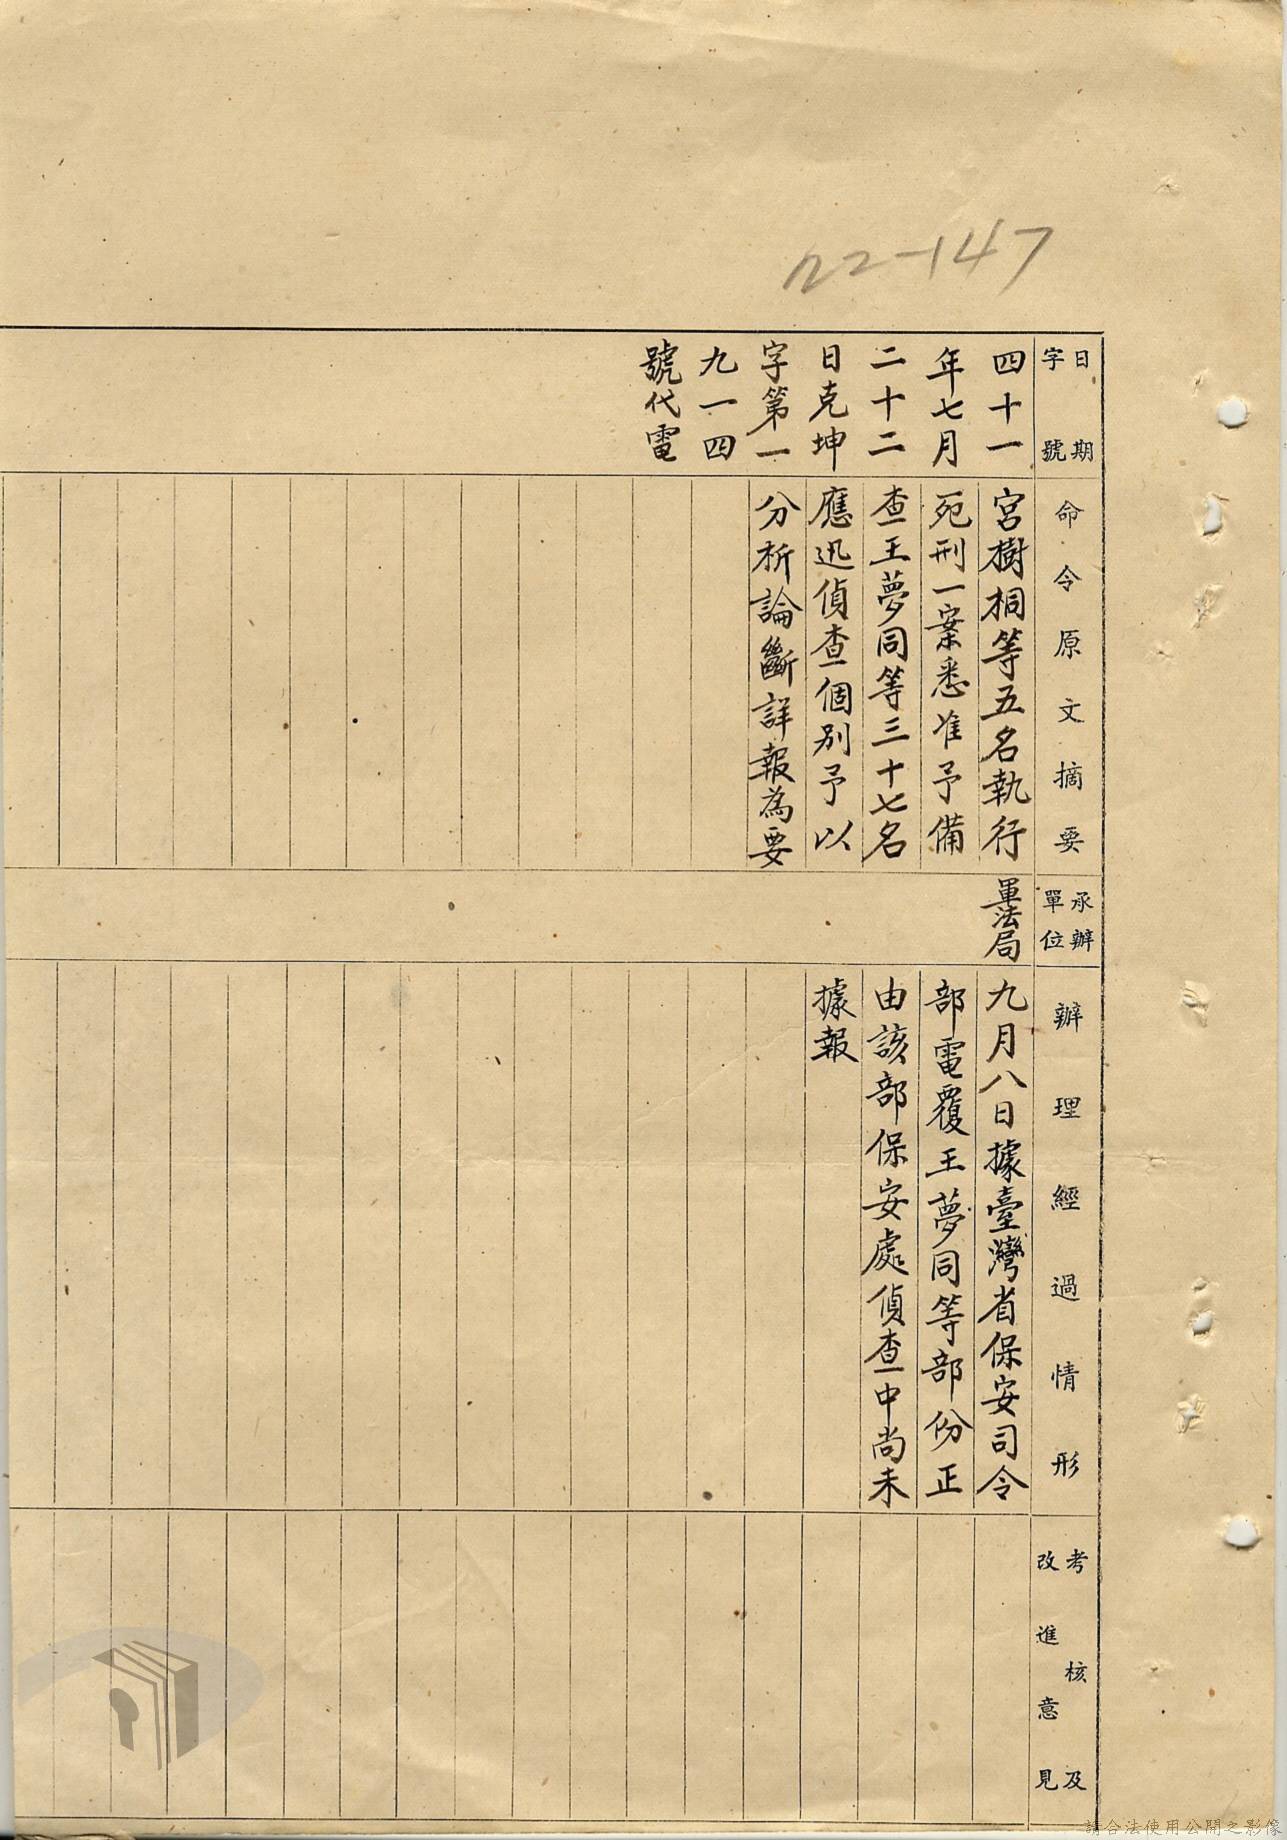 22-147
日期
字號
四十一
年七月
二十二
日克坤
字第一
九一四
號代電
命令原文摘要
宮樹桐等五名執行
死刑一案悉准予備
查王夢同等三十七名
應迅偵查個別予以
分析論斷詳報為要
承辦
單位
軍法局
辦理經過情形
九月八日據臺灣省保安司令
部電覆王夢同等部份正
由該部保安處偵查中尚未
據報
考核及
改進意見
請合法使用公開之影像